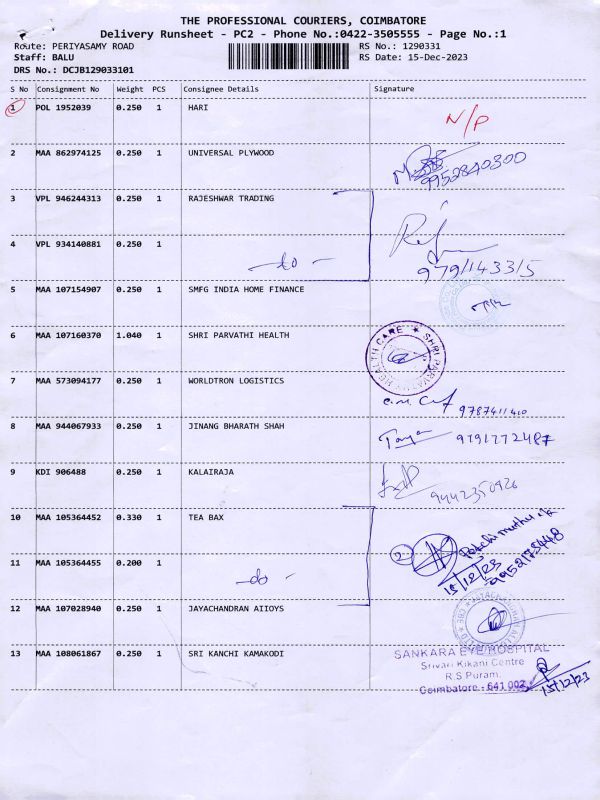 THE PROFESSIONAL COURIERS, COIMBATORE
Delivery Runsheet - PC2 - Phone No.:0422-3505555 - Page No.:1
Route: PERIYASAMY ROAD RS No.: 1290331
Staff: BALU RS Date: 15-Dec-2023
DRS No.: DCJB129033101
S No Consignment No Weight PCS Consignee Details Signature
1 POL 1952039 0.250 1 HARI N/P
2 MAA 862974125 0.250 1 UNIVERSAL PLYWOOD
9952840300
3 VPL 946244313 0.250 1 RAJESHWAR TRADING
4 VPL 934140881 0.250 1
-do-
9791143315
5 MAA 107154907 0.250 1 SMFG INDIA HOME FINANCE
6 MAA 107160370 1.040 1 SHRI PARVATHI HEALTH
HEALTH CARE ★ SHRI PARVATHI
7 MAA 573094177 0.250 1 WORLDTRON LOGISTICS
9787411410
8 MAA 944067933 0.250 1 JINANG BHARATH SHAH
9791772487
9 KDI 906488 0.250 1 KALAIRAJA
9442350926
10 MAA 105364452 0.330 1 TEA BAX
11 MAA 105364455 0.200 1
-do-
2
15/12/23
9952175448
12 MAA 107028940 0.250 1 JAYACHANDRAN AIIOYS
13 MAA 108061867 0.250 1 SRI KANCHI KAMAKODI
SANKARA EYE HOSPITAL
Srivari Kikani Centre
R.S Puram,
Coimbatore - 641 002
15/12/23